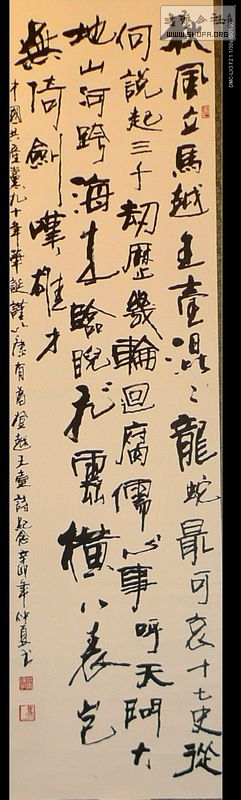 秋風立馬越王臺混々龍蛇最可哀十七史從
何說起三千劫歷幾輪回腐儒心事呼天問大
地山河跨海来臨睨飛雲橫八表豈
無倚劍嘆雄才
中國共產黨九十年華誕謹以康有為登越王臺詩紀念辛卯年仲夏書